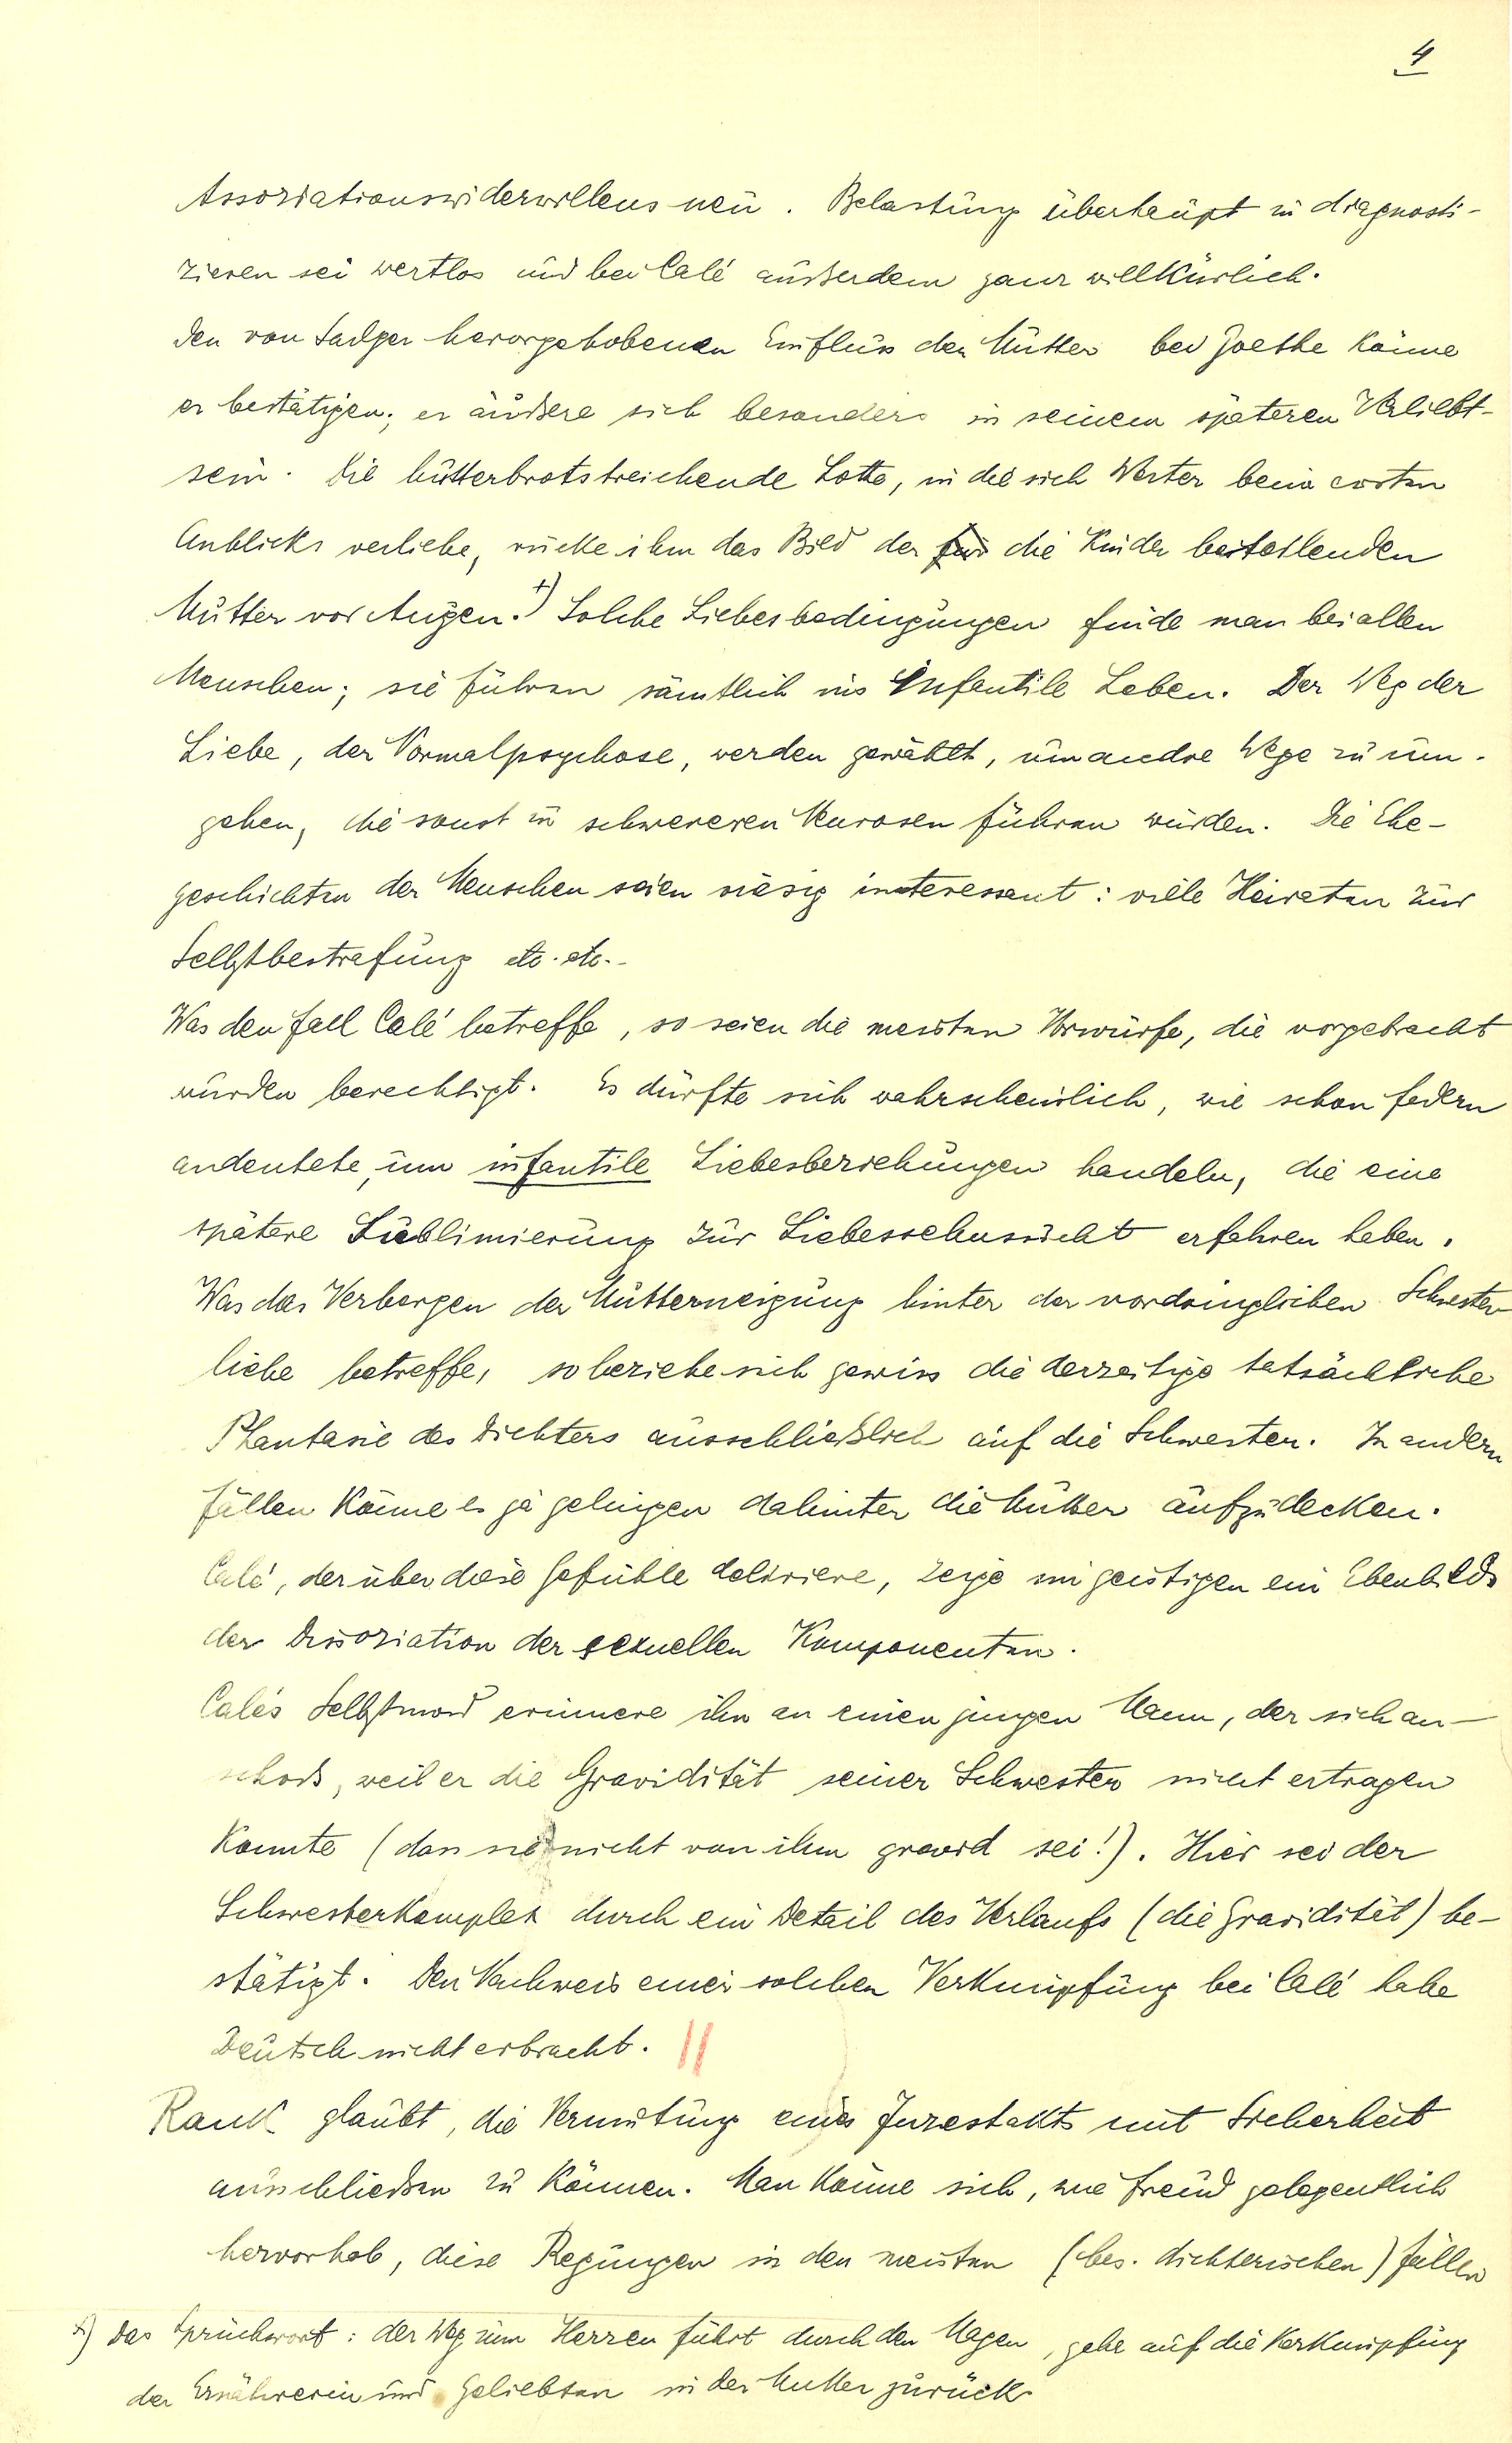 4
Assoziationswiderwillens neu. Belastung überhaupt zu diagnosti-
zieren sei wertlos und bei Calé außerdem ganz willkürlich.
Den von Sadger hervorgehobenen Einfluss der Mutter bei Goethe könne
er bestätigen; er äußere sich besonders in seinem späteren Verliebt-
sein. Die butterbrotstreichende Lotte, in die sich Werter beim ersten
Anblicke verliebe, rücke ihm das Bild der für die Kinder beiteilenden
Mutter vor Augen.+) Solche Liebesbedingungen finde man bei allen
Menschen; sie führen sämtlich ins Infantile Leben. Der Weg der
Liebe, der Normalpsychose, werden gewählt, um andre Wege zu um-
gehen, die sonst zu schwereren Neurosen führen würden. Die Ehe-
geschichten der Menschen seien riesig interessant: viele Heiraten zur
Selbstbestrafung etc. etc.-
Was den Fall Calé betreffe, so seien die meisten Vorwürfe, die vorgebracht
wurden berechtigt. Es dürfte sich wahrscheinlich, wie schon Federn
andeutete, um infantile Liebesbeziehungen handeln, die eine
spätere Sublimierung zur Liebessehnsucht erfahren haben.
Was das Verbergen der Mutterneigung hinter der vordringlichen Schwester
liebe betreffe, so beziehe sich gewiss die derzeitige tatsächliche
Phantasie des Dichters ausschließlich auf die Schwester. In andern
Fällen könne es ja gelingen dahinter die Mutter aufzudecken.
Calé, der über diese Gefühle deliriere, zeige im geistigen ein Ebenbild
der Dissoziation der sexuellen Komponenten.
Calés Selbstmord erinnere ihn an einen jungen Mann, der sich an-
schoß, weil er die Gravidität seiner Schwester nicht ertragen
konnte (dass sie nicht von ihm gravid sei!). Hier sei der
Schwesterkomplex durch ein Detail des Verlaufs (die Gravidität) be-
stätigt. Den Nachweis einer solchen Verknüpfung bei Calé habe
Deutsch nicht erbracht. ||
Rank glaubt, die Vermutung eines Inzestakts mit Sicherheit
ausschließen zu können. Man könne sich, wie Freud gelegentlich
hervorhob, diese Regungen in den meisten (bes. dichterischen) Fällen
+) Das Sprüchwort: der Weg zum Herzen führt durch den Magen, gehe auf die Verknüpfung
der Ernährerin und Geliebten in der Mutter zurück